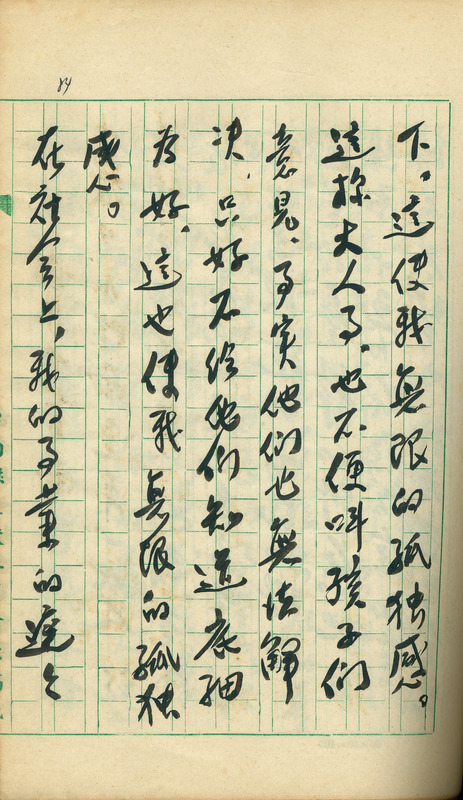 84
下，這使我無限的孤独感。
這様大人事，也不便叫孩子們
意見，事实他們也無法解
决，只好不给他們知道底细
为好，這也使我無限的孤独
感。
在社会上，我的事業的遶々